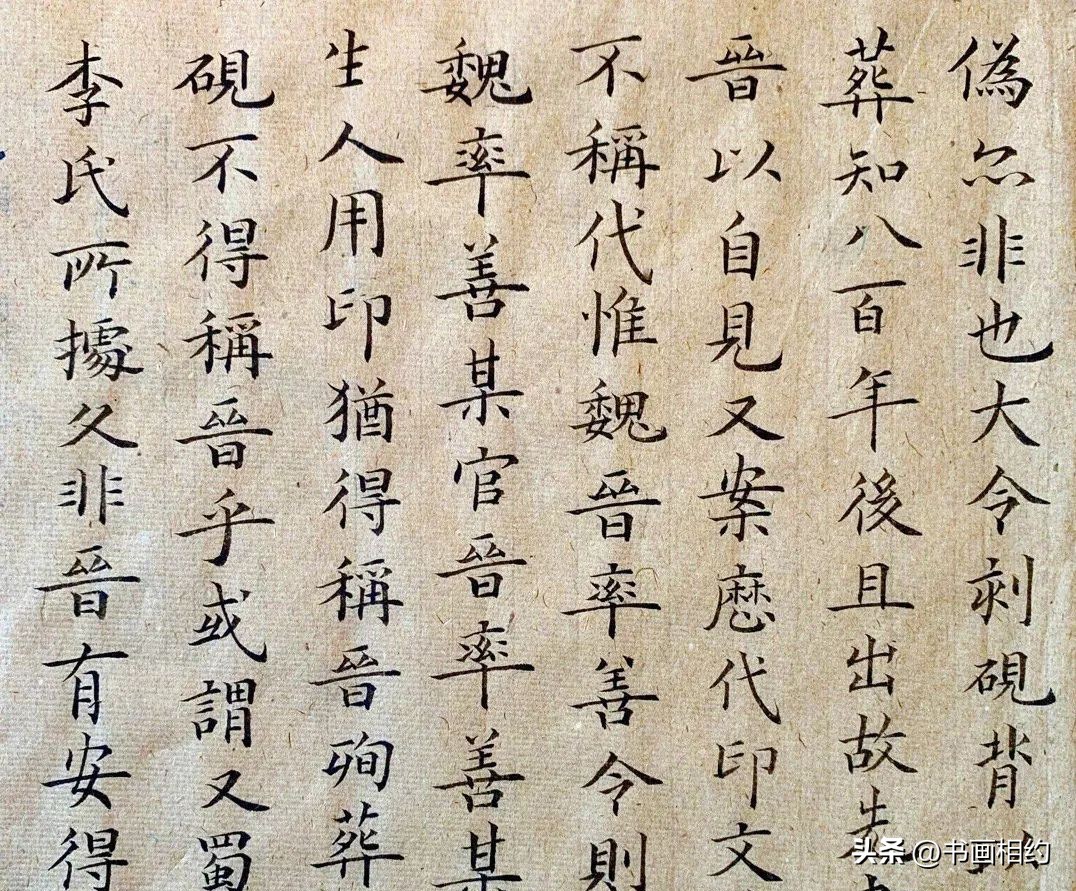 偽亦非也大令刻硯背
葬知八百年後且出故先
晉以自見又案歷代印文
不稱代惟魏晉率善令則
魏率善某官晉率善某
生人用印猶得稱晉殉葬
硯不得稱晉乎或謂又蜀
李氏所據久非晉有安得
头条 @书画相约